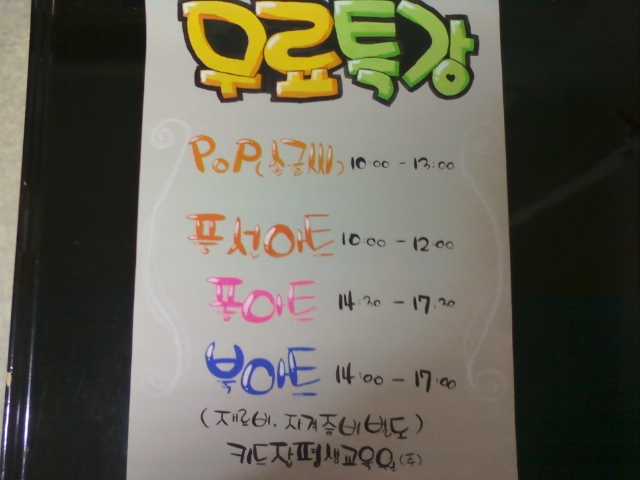 무료특강
POP(손글씨) 10:00 - 13:00
풍선아트 10:00 - 12:00
폼아트 14:30 - 17:30
북아트 14:00 - 17:00
(재료비. 자격증비 별도)
키드잡평생교육원(주)